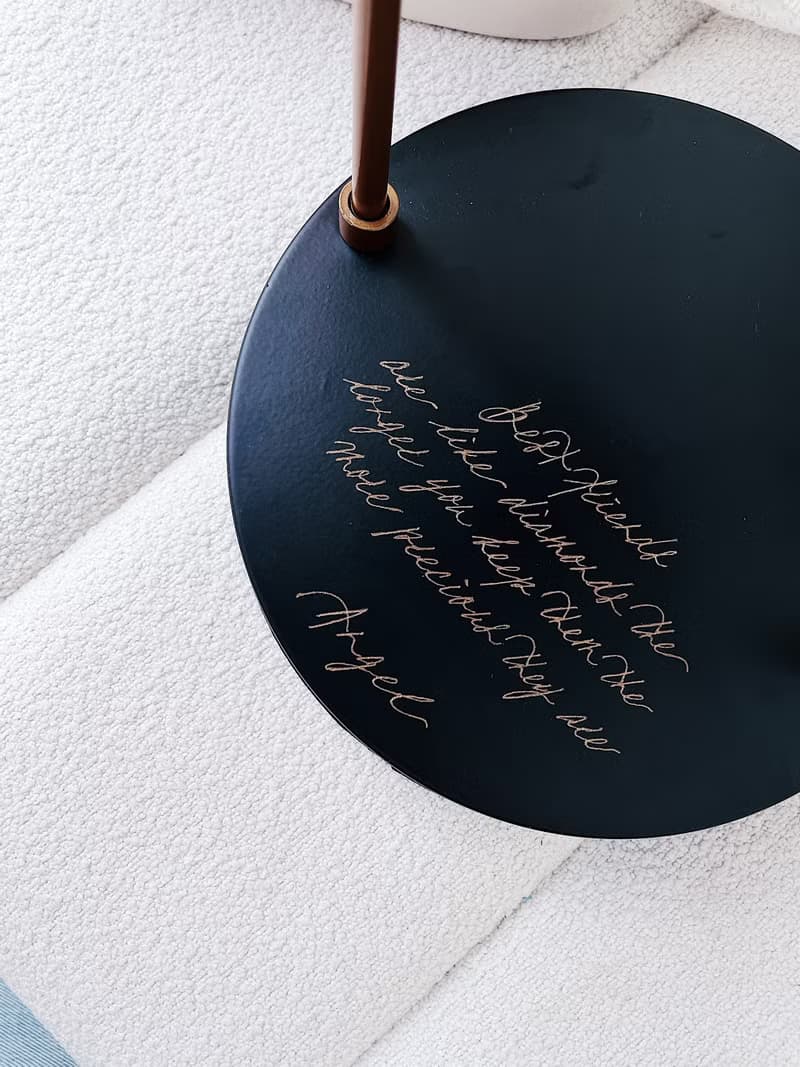 Best friends
are like diamonds the
longer you keep them the
more precious they are
Angel